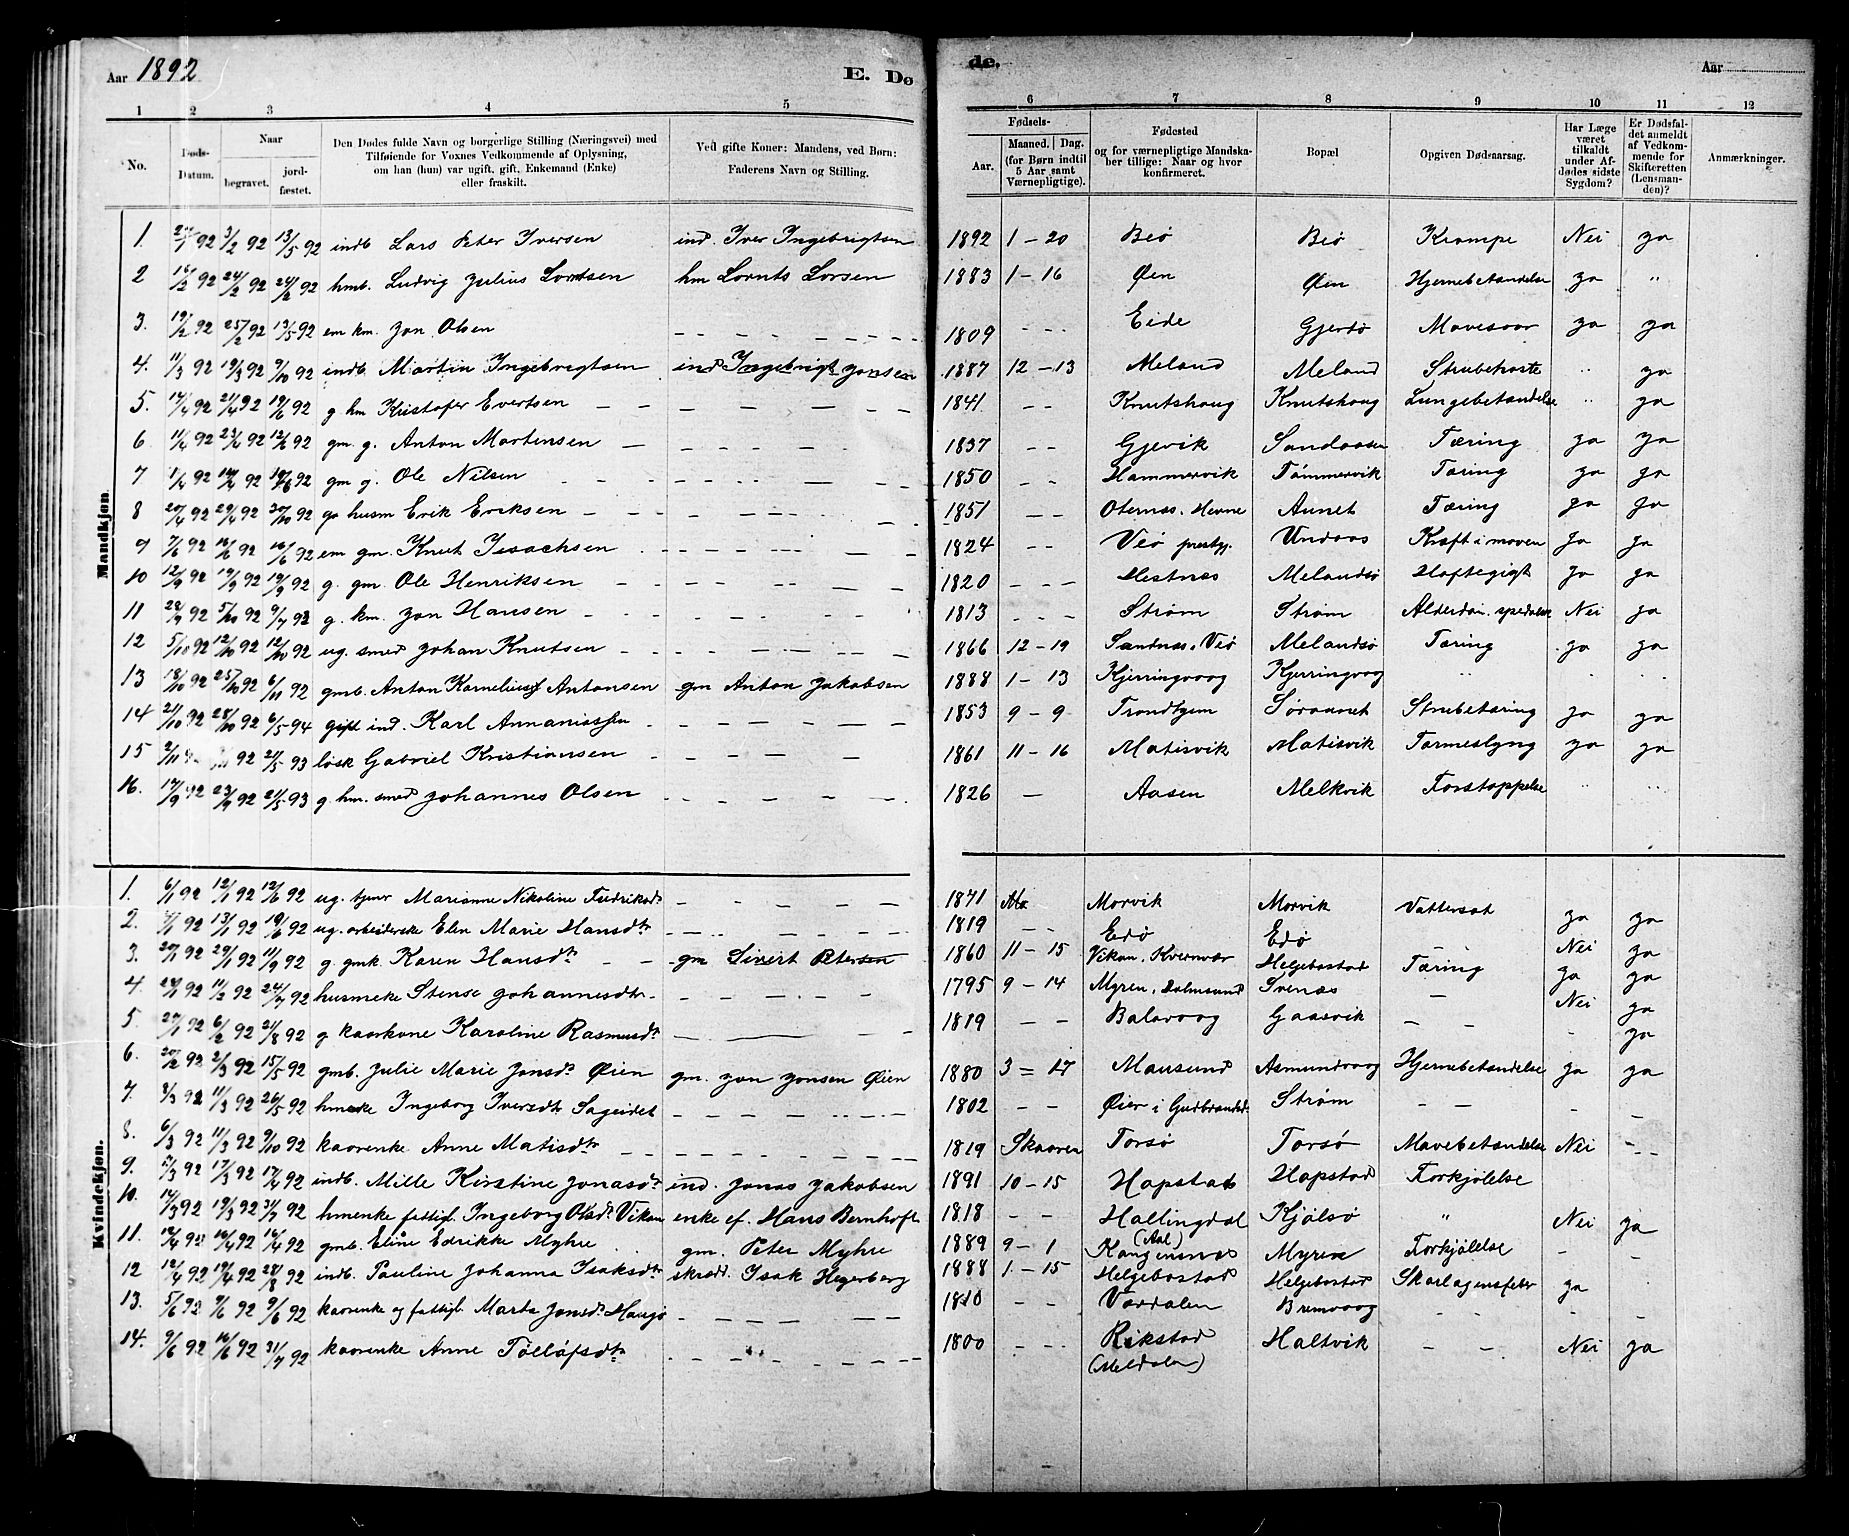 Aar 1892
E. Dø
de.
Aar
1 2 3 4 5
6 7 8 9 10 11 12
No.
Døds-Datum.
Naar
begravet.
jord-fæstet.
Den Dødes fulde Navn og borgerlige Stilling (Næringsvei) med
Tilføiende for Voxnes Vedkommende af Oplysning,
om han (hun) var ugift, gift, Enkemand (Enke)
eller fraskilt.
Ved gifte Koner: Mandens, ved Børn:
Faderens Navn og Stilling.
Fødsels-
Aar.
Maaned. Dag.
(for Børn indtil
5 Aar samt
Værnepligtige).
Fødested
og for værnepligtige Mandska-
ber tillige: Naar og hvor
konfirmeret.
Bopæl
Opgiven Dødsaarsag.
Har Læge
været
tilkaldt
under Af-
dødes sidste
Sygdom?
Er Dødsfal-
det anmeldt
af Vedkom-
mende for
Skifteretten
(Lensman-
den)?
Anmærkninger.
Mandkjøn.
1. 3/2 92 13/5 92 indb Lars Peter Iversen ind. Iver Ingebrigtsen 1892 1 - 20 Beø Beø Krampe Nei ja
2 16/2 92 24/2 92 24/2 92 hmb. Ludvig Julius Lorntsen hm Lornts Lorsen 1883 1 - 16 Øen Øen Hjernebetændelse ja "
3. 19/2 92 25/2 92 13/5 92 em km. Jon Olsen 1809 Eide Gjerdø Mavesaar ja ja
4. 11/3 92 19/3 92 9/10 92 indb. Martin Ingebrigtsen ind Ingebrigt Jonsen 1887 12 - 13 Meland Meland Strubehoste " ja
5. 14/4 92 21/4 92 19/6 92 g. hm Kristofer Evertsen 1841 Knutshaug Knutshaug Lungebetændelse " ja
6 92 92 12/6 92 gm. g. Anton Martensen 1837 Gjevik Sandaasen Tæring ja ja
7 1/4 92 92 19/6 92 gm g. Ole Nilsen 1850 Hammervik Tømmervik Tæring ja ja
8 20/4 92 29/4 92 30/10 92 g. husm Erik Eriksen 1851 Oternæs, Hevne Aunet Tæring ja ja
9 7/6 92 16/6 92 16/6 92 em gm. Knut Isachsen 1824 Veø prestgj. Undaas Kræft i maven Ja Ja
10 12/9 92 19/9 92 19/9 92 g. gm. Ole Henriksen 1820 Hestnæs Melandsø Hoftegigt Ja ja
11 92 5/10 92 9/7 93 g. km. Jon Hansen 1813 Strøm Strøm Alderdom. spedalsk Nei ja
12 5/10 92 12/10 92 12/10 92 ug. smed Johan Knutsen 1866 12 - 19 Sandnæs, Veø Melandsø Tæring ja ja
13 18/10 92 25/10 92 6/11 92 gmb. Anton Kornelius Antonsen gm Anton Jakobsen 1888 1 - 13 Kjerringvaag Kjerringvaag
14 21/10 92 28/10 92 6/5 94 gift ind. Karl Annaniassen 1853 9 - 9 Trondhjem Søraunet Strubetæring ja ja
15 2/11 92 21/5 93 løsk Gabriel Kristiansen 1861 11 - 16 Matisvik Matisvik Tarmeslyng ja ja
16. 17/9 92 23/9 92 21/5 93 g. hm. smed Johannes Olsen 1826 Aasen Melkvik Forstoppelse " "
Kvindekjøn.
1. 6/1 92 12/1 92 12/6 92 ug. tjener Marianne Nikoline Fredriksdr 1871 Morvik Morvik Vattersot ja ja
2. 92 13/1 92 19/6 92 ug. arbeiderske Elen Marie Hansdtr 1819 Edø Edø Nei ja
3. 20/1 92 29/1 92 11/9 92 g. gmk. Karen Hansdtr gm Sivert Petersen 1860 11 - 15 Vikan, Kvernvær Helgebostad Tæring ja ja
4. 92 11/2 92 24/7 92 husmeke Stense Johannesdtr 1795 9 - 14 Myren, Svenæs Nei ja
5. 92 6/2 92 21/8 92 g kaarkone Karoline Rasmusdtr 1819 Balavaag Gaasvik ja
6. 20/2 92 2/3 92 15/5 92 gmb. Julie Marie Jonsdr Øien gm. Jon Jonsen Øien 1880 3 - 17 Mausund Asmundvaag Hjernebetændelse ja ja
7. 3/3 92 11/3 92 26/5 92 hmeke Ingeborg Iversdtr Sageidet 1802 Øier i Gudbrandsd. Strøm
8. 6/3 92 11/3 92 9/10 92 kaarenke Anne Matisdtr 1819 Skaaren Torsø Torsø Mavebetændelse Nei
9. 92 17/3 92 17/4 92 indb. Mille Kirstine Jonasdtr ind. Jonas Jakobsen 1891 10 - 15 Hapstad Hapstad Forkjølelse
10. 14/3 92 19/3 92 31/7 92 hmenke fattigl. Ingeborg Olsdtr Vikan enke ef. Hans Bernhoft 1818 Hallingdal (Aal) Kjølsø " Nei ja
11. 92 16/4 92 16/4 92 gmb. Eline Edrikke Myhre gm. Peter Myhre 1889 9 - 1 Myren Forkjølelse
12 12/4 92 19/4 92 28/8 92 indb. Pauline Johanna Isaksdtr skrædd. Isak Hegerberg 1888 1 - 15 Helgebostad Helgebostad Skarlagensfeber ja
13. 5/6 92 9/6 92 9/6 92 kaarenke og fattigl. Marta Jonsdr. 1810 Værdalen Bremvaag
14. 9/6 92 16/6 92 31/7 92 kaarenke Anne Tølløfsdtr 1800 Rikstad (Meldalen) Haltvik Nei ja